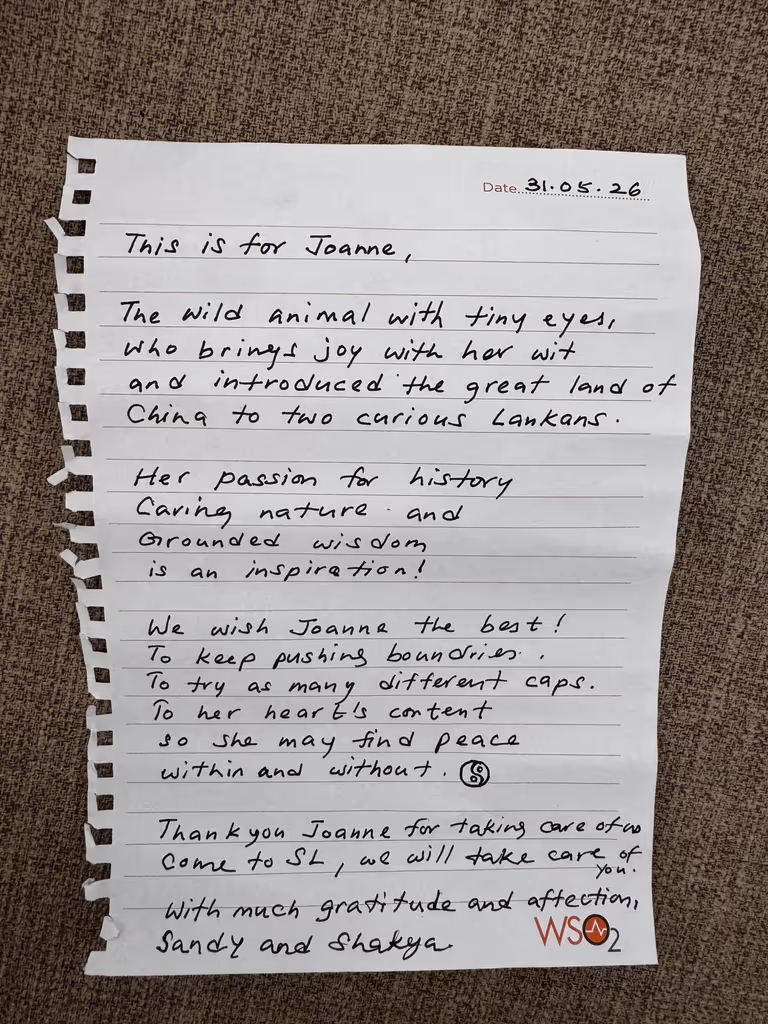 Date 31.05.26
This is for Joanne,
The wild animal with tiny eyes,
who brings joy with her wit
and introduced the great land of
China to two curious Lankans.
Her passion for history
Caring nature and
Grounded wisdom
is an inspiration!
We wish Joanne the best!
To keep pushing boundries.
To try as many different caps.
To her heart's content
so she may find peace
within and without.
Thank you Joanne for taking care of us
Come to SL, we will take care of
you.
With much gratitude and affection,
Sandy and Shakya
WSO2